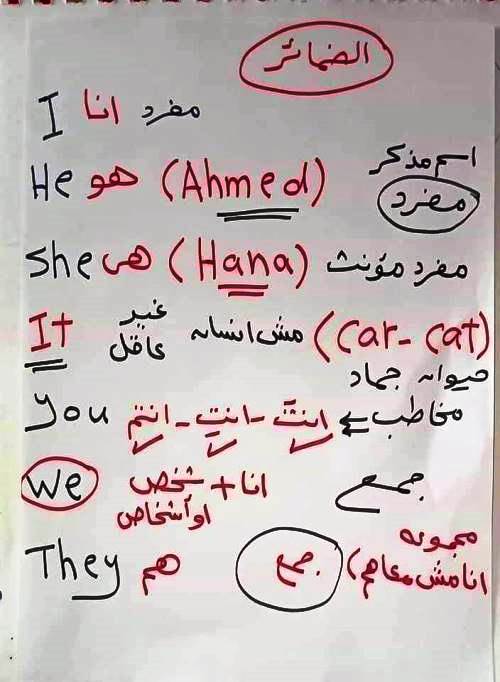 الضمائر
I انا مفرد
اسم مذكر
He هو (Ahmed) مفرد
She هى (Hana) مفرد مؤنث
It غير عاقل مش انسان (car - cat)
حيوان جماد
you انتَ - انتِ - انتم ⇐ مخاطب
we انا + شخص او أشخاص جمع
They هم جمع مجموعه
(انا مش معاهم